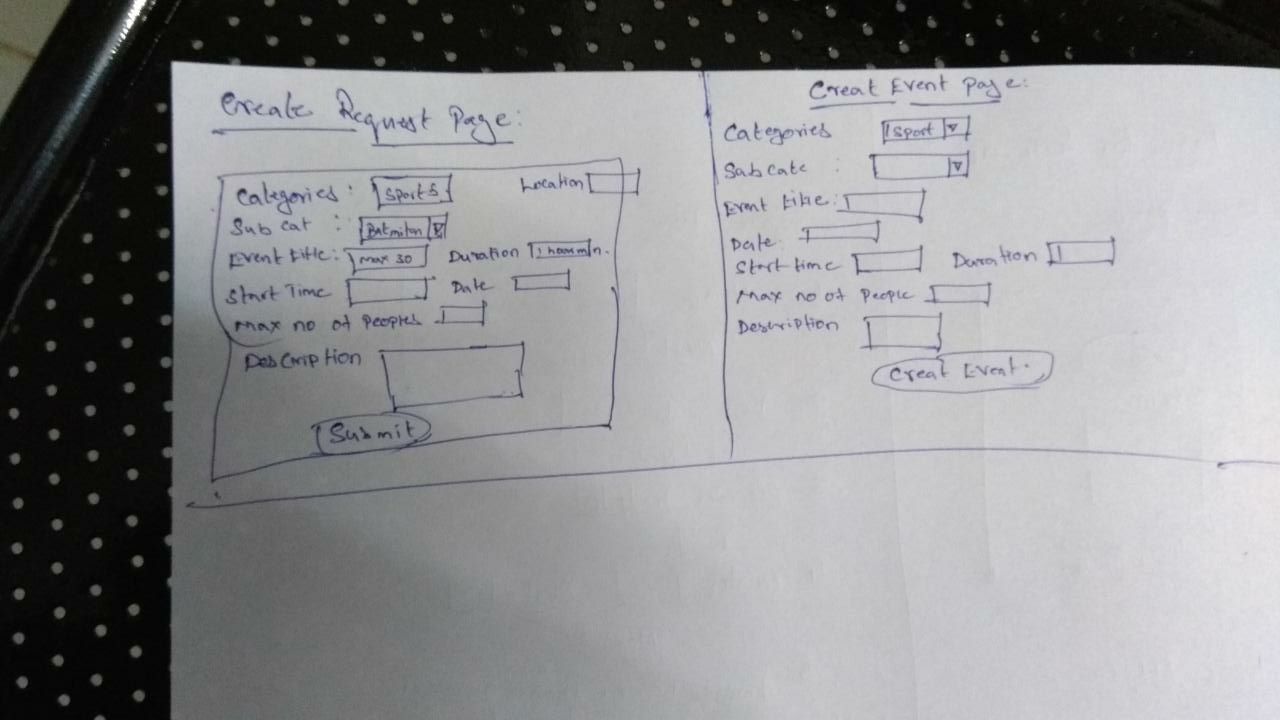 Create Request Page:
Categories : Sports Location
Sub cat : Batmiton
Event title: max 30 Duration 1 hour min.
Start Time Date
Max no of Peoples
Description
Submit
Creat Event page:
Categories Sport
Sub cate :
Event title:
Date:
Start time Duration
Max no of People
Description
Creat Event.